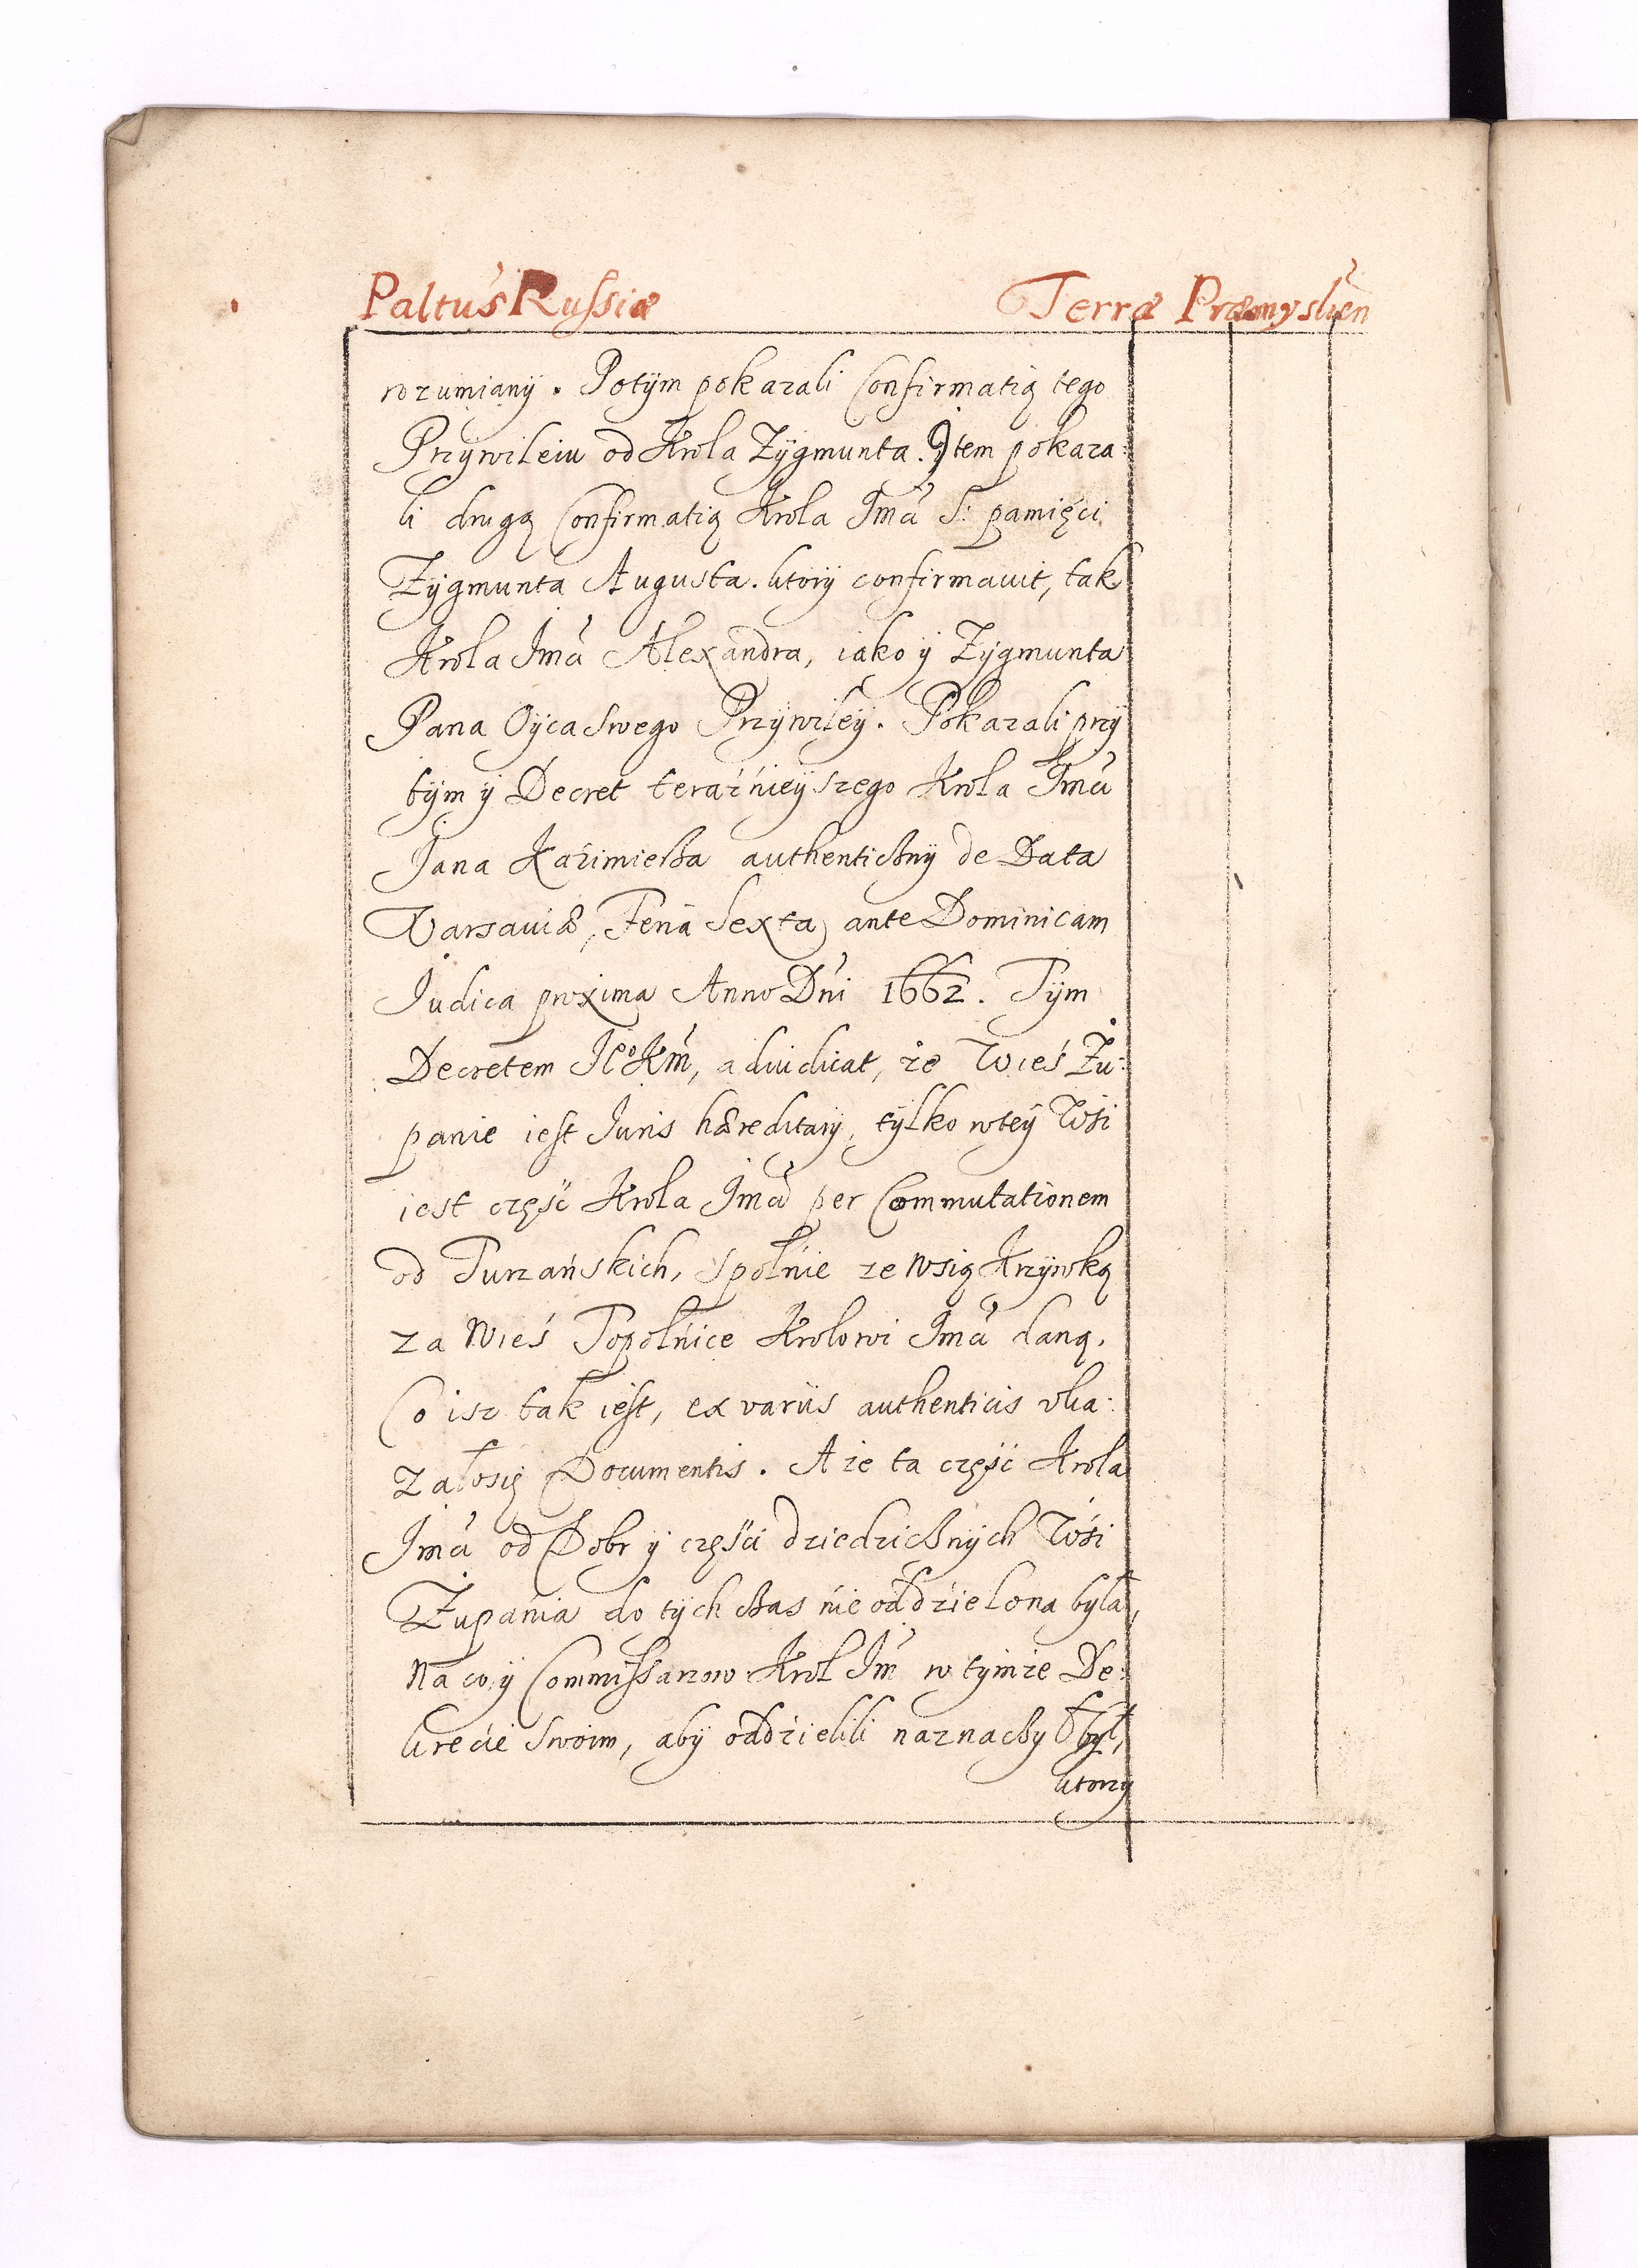 Paltus Russiæ Terræ Præmyslien
rozumiany. Potÿm pokazali Confirmatią tego
Przywileiu od Krola Zÿgmunta. Item pokaza:
li drugą Confirmatią Krola Jmći S: pamięci
Zÿgmunta Augusta. ktorÿ confirmauit, tak
Krola Jmći Alexandra, iako ÿ Zÿgmunta
Pana Oÿca swego Przÿwileÿ. Pokazali przÿ
tÿm ÿ Decret teraźnieÿszego Krola Jmći
Jana Kaźimierza authenticznÿ de Data
Varsauiæ, Feria Sexta ante Dominicam
Judica proxima Anno Dńi 1662. Tÿm
Decretem JeoKm̃, adiudicat, że Wieś Żu:
panie iest Juris hæreditarÿ, tÿlko w teÿ Wśi
iest część Krola Jmći per Commutationem
od Turzańskich, spolńie ze wsią Krzÿwką
za wieś Topolńice Krolowi Jmći daną.
Co isz tak iest, ex varÿs authenticis vka:
załosię Documentis. A że ta część Krola
Jmći od Dobr ÿ częśći dziedzicznÿch Wśi
Żupańia do tÿch czas ńie oddźielona była,
na co ÿ Commissarzow Krol Jm̃ w tÿmże De:
krecie swoim, abÿ oddźielili naznaczÿł bÿł,
ktorzy